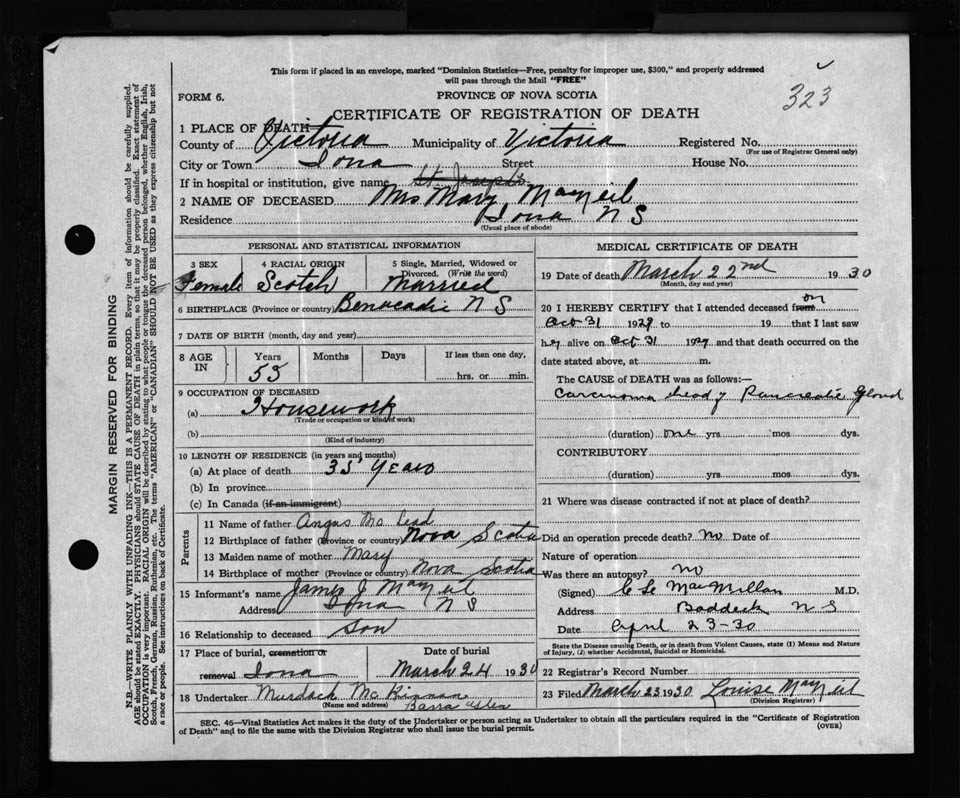 This form if placed in an envelope, marked "Dominion Statistics—Free, penalty for improper use, $300," and properly addressed
will pass through the Mail "FREE"
323
FORM 6. PROVINCE OF NOVA SCOTIA
CERTIFICATE OF REGISTRATION OF DEATH
1 PLACE OF DEATH
County of Victoria Municipality of Victoria Registered No.
(For use of Registrar General only)
City or Town Iona Street House No.
If in hospital or institution, give name St. Joseph's
2 NAME OF DECEASED Mrs Mary MacNeil
Residence Iona N S
(Usual place of abode)
PERSONAL AND STATISTICAL INFORMATION
3 SEX 4 RACIAL ORIGIN 5 Single, Married, Widowed or
Divorced. (Write the word)
Female Scotch Married
6 BIRTHPLACE (Province or country) Benacadie N S
7 DATE OF BIRTH (month, day and year)
8 AGE IN Years Months Days If less than one day,
55 hrs. or min.
9 OCCUPATION OF DECEASED
(a) Housework
(Trade or occupation or kind of work)
(b)
(Kind of industry)
10 LENGTH OF RESIDENCE (in years and months)
(a) At place of death 35 Years
(b) In province
(c) In Canada (if an immigrant)
Parents
11 Name of father Angus Mc Lead
12 Birthplace of father (Province or country) Nova Scotia
13 Maiden name of mother Mary
14 Birthplace of mother (Province or country) Nova Scotia
15 Informant's name James J MacNeil
Address Iona N S
16 Relationship to deceased Son
17 Place of burial, cremation or removal Date of burial
Iona March 24 1930
18 Undertaker Murdock McKinnon
(Name and address) Barra Glen
MEDICAL CERTIFICATE OF DEATH
19 Date of death March 22nd 1930
(Month, day and year)
20 I HEREBY CERTIFY that I attended deceased from on
Oct 31 1929 to 19 that I last saw
her alive on Oct 31 1929 and that death occurred on the
date stated above, at m.
The CAUSE OF DEATH was as follows:—
Carcinoma head of Pancreatic Gland
(duration) one yrs mos dys.
CONTRIBUTORY
(duration) yrs mos dys.
21 Where was disease contracted if not at place of death?
Did an operation precede death? no Date of
Nature of operation
Was there an autopsy? no
(Signed) C L MacMillan M.D.
Address Baddeck N S
Date April 23-30
State the Disease causing Death, or in death from Violent Causes, state (1) Means and Nature
of Injury, (2) whether Accidental, Suicidal or Homicidal.
22 Registrar's Record Number
23 Filed March 23 1930 Louise MacNeil
(Division Registrar)
SEC. 46—Vital Statistics Act makes it the duty of the Undertaker or person acting as Undertaker to obtain all the particulars required in the "Certificate of Registration
of Death" and to file the same with the Division Registrar who shall issue the burial permit. (OVER)
MARGIN RESERVED FOR BINDING
N.B.—WRITE PLAINLY WITH UNFADING INK—THIS IS A PERMANENT RECORD. Every item of information should be carefully supplied.
AGE should be stated EXACTLY. PHYSICIANS should STATE CAUSE OF DEATH in plain terms, so that it may be properly classified. Exact statement of
OCCUPATION is very important. RACIAL ORIGIN will be described by stating to what people or tongue the deceased person belonged, whether English, Irish,
Scotch, French, German, Russian, Ruthenian, etc. The terms "AMERICAN" or "CANADIAN" SHOULD NOT BE USED as they express citizenship but not
a race or people. See instructions on back of Certificate.